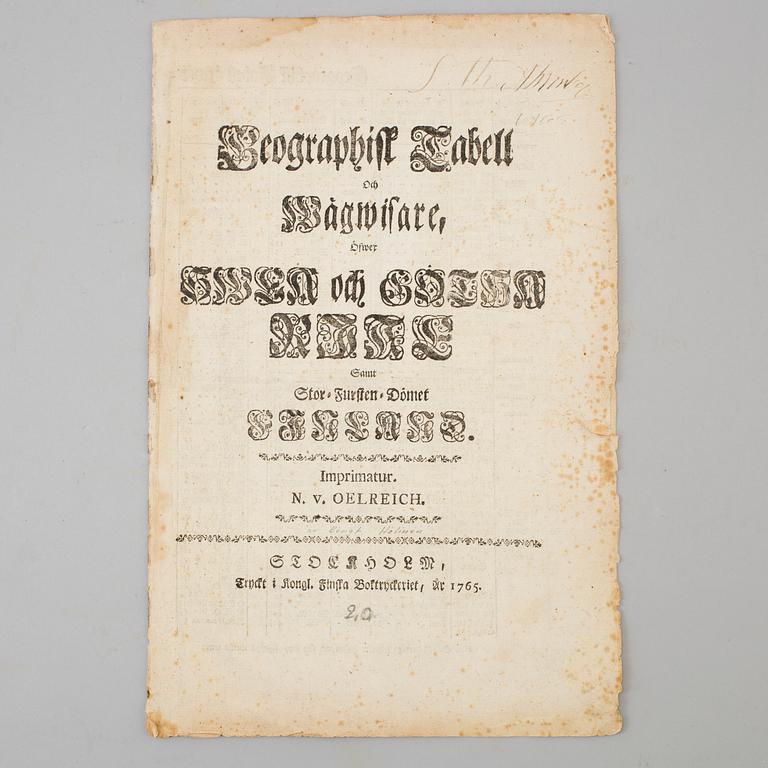 Geographisk Tabell
Och
Wägwisare,
Öfwer
SWEA och GÖTHA
RIKE
Samt
Stor-Fursten-Dömet
FINLAND.
Imprimatur.
N. v. OELREICH.
av Bengt Holmén
STOCKHOLM,
Tryckt i Kongl. Finska Boktryckeriet, År 1765.
20